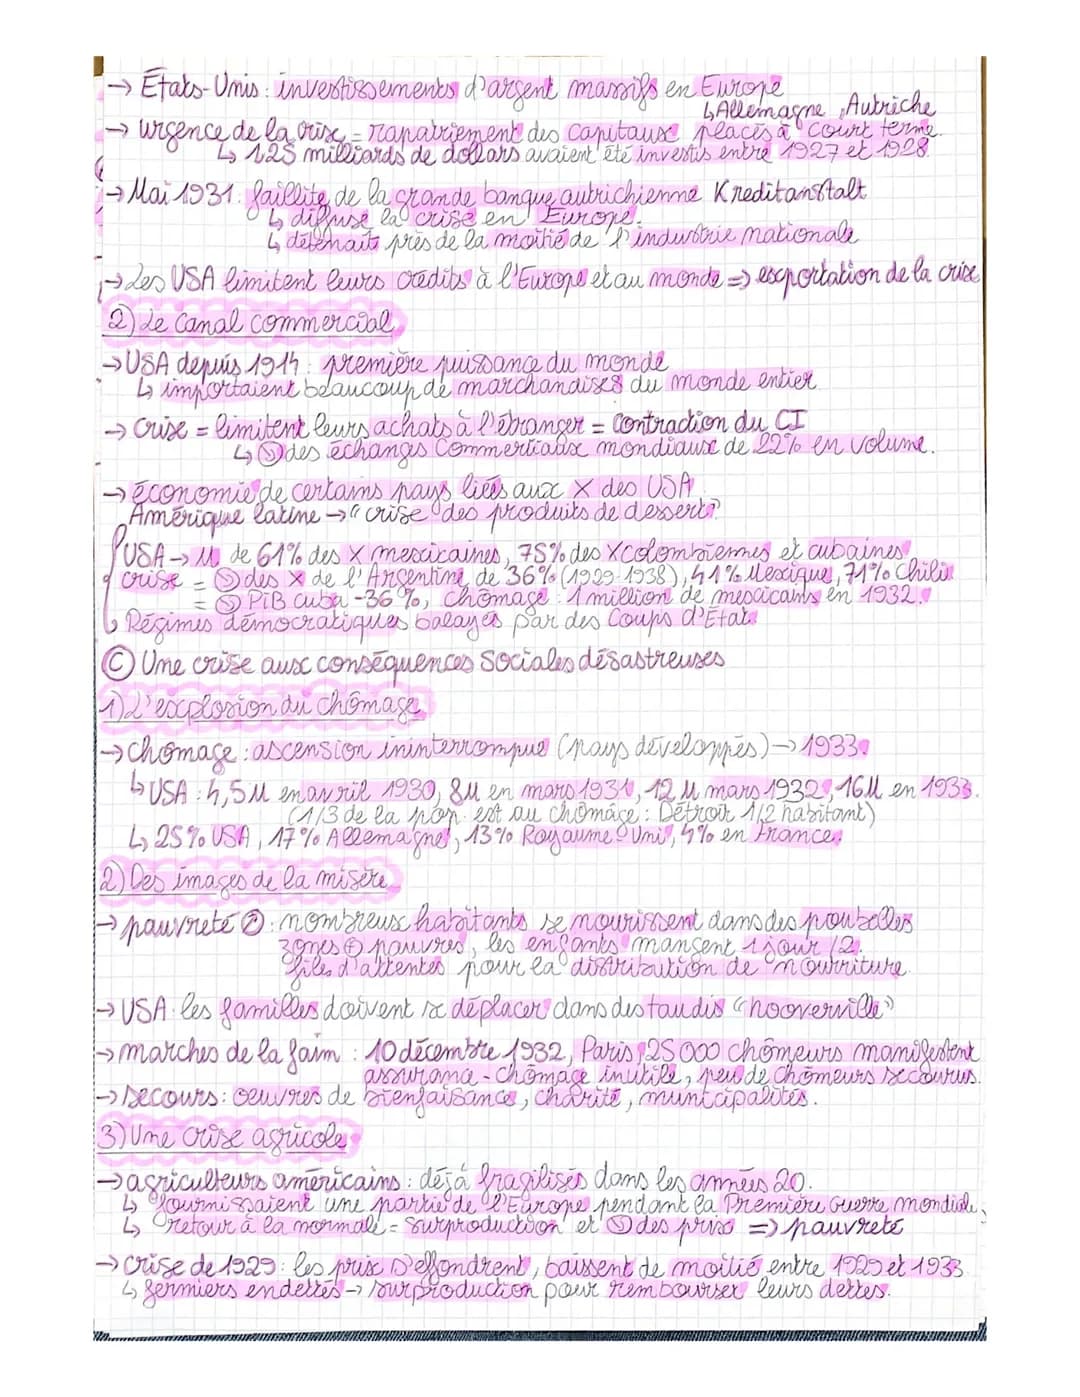 → États-Unis : investissements d'argent massifs en Europe
↳ Allemagne, Autriche
→ urgence de la crise = rapatriement des capitaux placés à court terme.
↳ 1,25 milliards de dollars avaient été investis entre 1927 et 1928.
→ Mai 1931 : faillite de la grande banque autrichienne Kreditanstalt
↳ diffuse la crise en Europe.
↳ détenait près de la moitié de l'industrie nationale
→ Les USA limitent leurs crédits à l'Europe et au monde => exportation de la crise
2) Le canal commercial
→ USA depuis 1914 : première puissance du monde
↳ importaient beaucoup de marchandises du monde entier
→ Crise = limitent leurs achats à l'étranger = contraction du CI
↳ ↘ des échanges commerciaux mondiaux de 22% en volume.
→ économie de certains pays liées aux X des USA
Amérique latine → "crise des produits de dessert"
USA → M de 61% des X mexicaines, 75% des X colombiennes et cubaines
crise = ↘ des X de l'Argentine de 36% (1929-1938), 41% Mexique, 71% Chili
= ↘ PiB cuba -36%, chômage : 1 million de mexicains en 1932.
↳ Régimes démocratiques balayés par des Coups d'État
C Une crise aux conséquences sociales désastreuses
1) L'explosion du chômage
→ chômage : ascension ininterrompue (pays développés) → 1933
↳ USA : 4,5M en avril 1930, 8M en mars 1931, 12 M mars 1932, 16M en 1933.
(1/3 de la pop. est au chômage : Détroit 1/2 habitant)
↳ 25% USA, 17% Allemagne, 13% Royaume-Uni, 4% en France.
2) Des images de la misère
→ pauvreté ↗ : nombreux habitants se nourrissent dans des poubelles
zones ⊕ pauvres, les enfants mangent 1 jour/2.
files d'attentes pour la distribution de nourriture.
→ USA : les familles doivent se déplacer dans des taudis "hooverville"
→ marches de la faim : 10 décembre 1932, Paris, 25 000 chômeurs manifestent
assurance-chômage inutile, peu de chômeurs secourus.
→ secours : oeuvres de bienfaisance, charité, municipalités.
3) Une crise agricole
→ agriculteurs américains : déjà fragilisés dans les années 20.
↳ fournissaient une partie de l'Europe pendant la Première Guerre mondiale
↳ retour à la normale = surproduction et ↘ des prix => pauvreté
→ crise de 1929 : les prix s'effondrent, baissent de moitié entre 1929 et 1933
↳ fermiers endettés → surproduction pour rembourser leurs dettes.